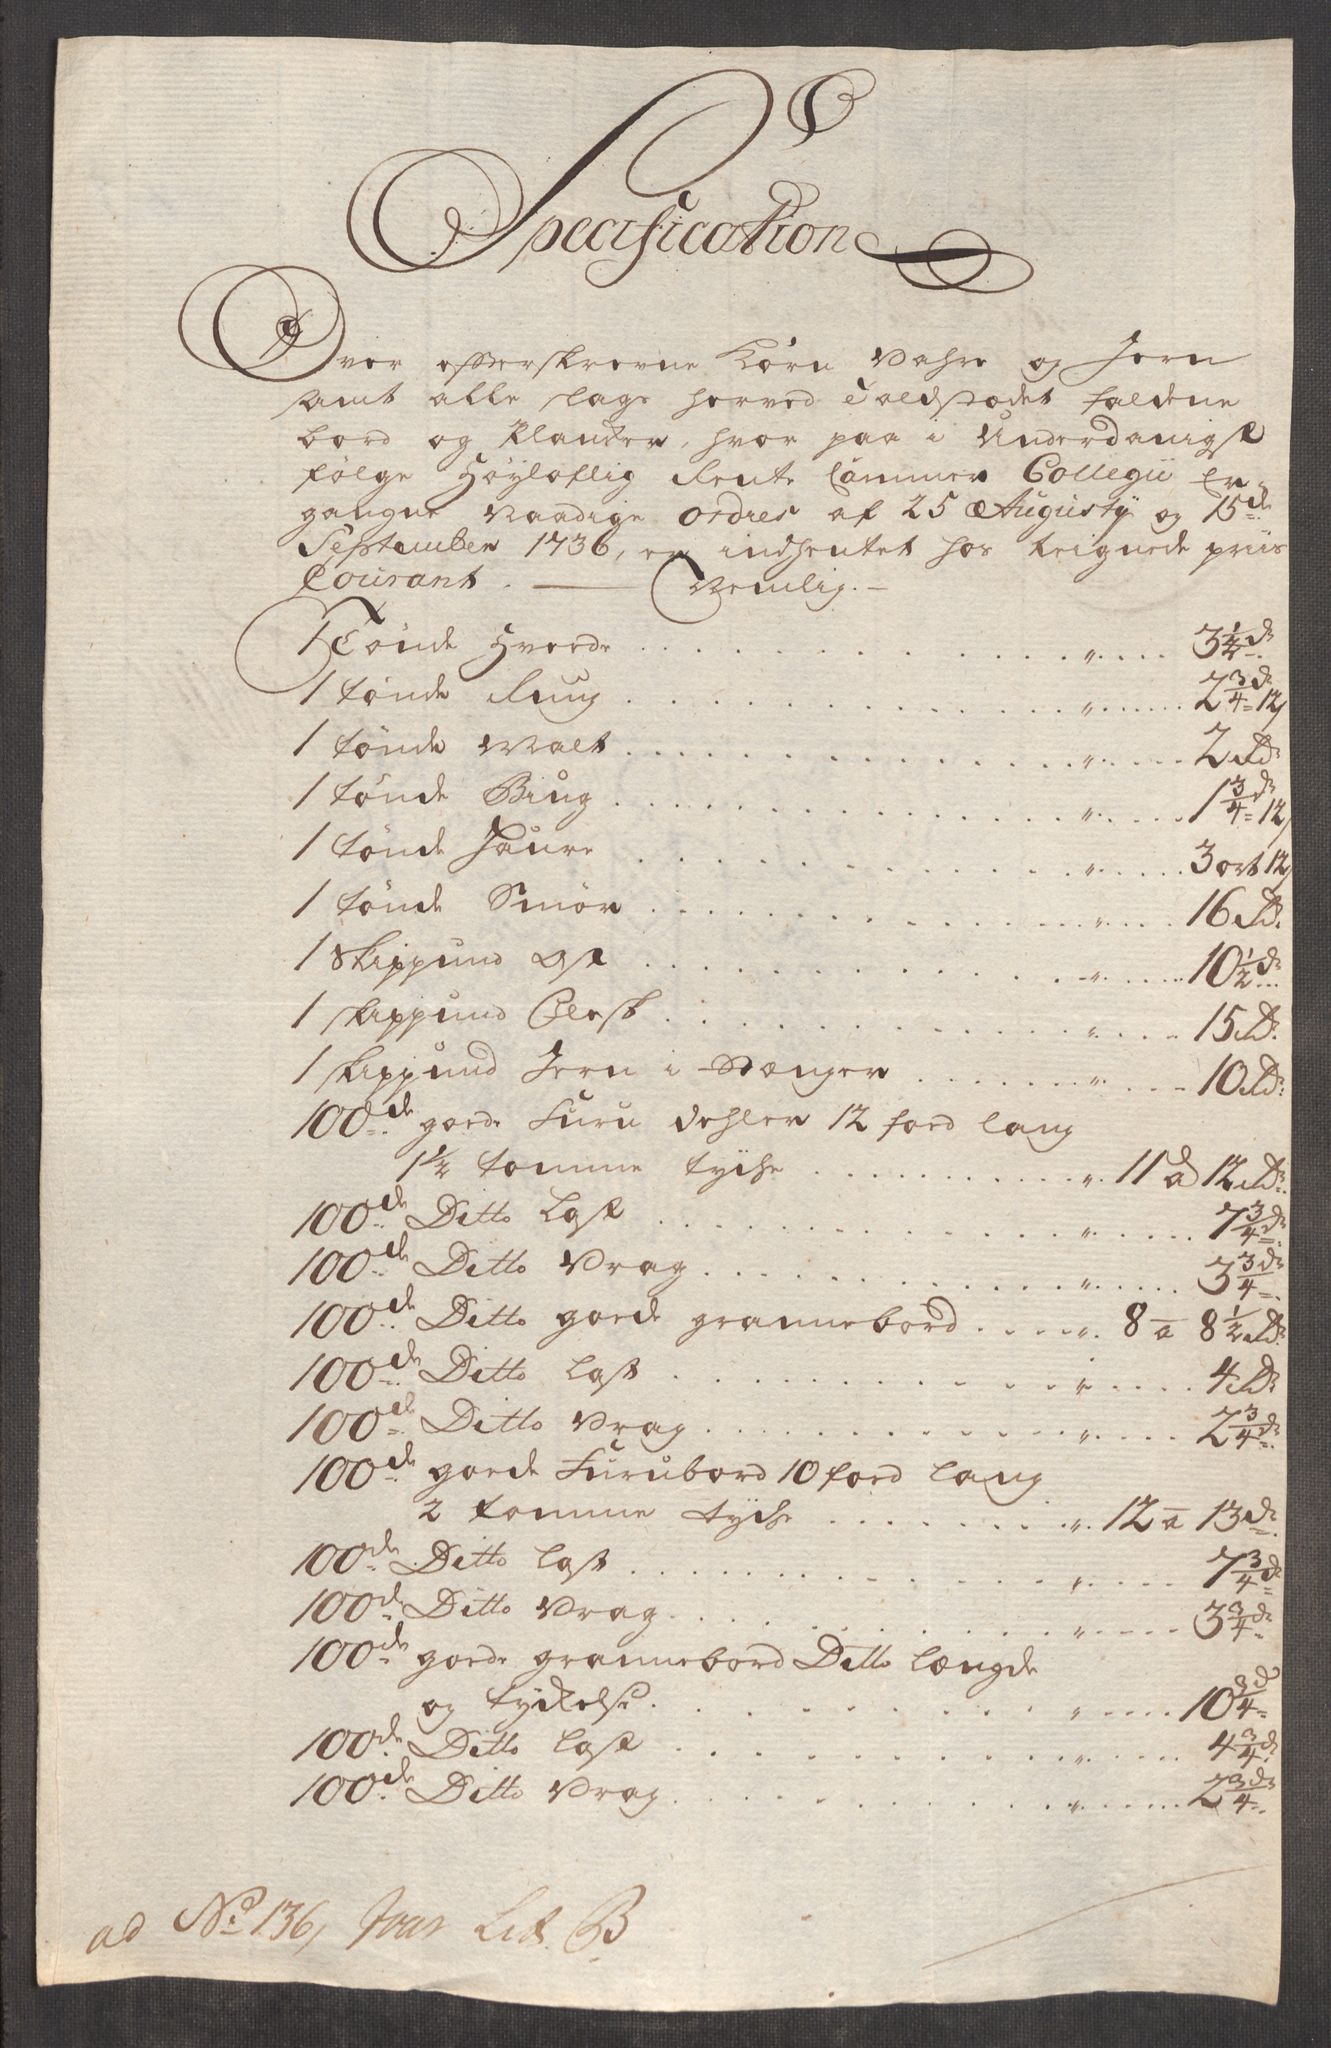 Specification
Over efterskrevne Korn Vahre og Jern
samt alle slags herved Toldstædet faldene
bord og Plancker, hvor paa i Underdanigst
følge Høyloflig Rente Cammer Collegii Er-
gangne Naadige Ordres af 25 Augusty og 15de
September 1736, er indhentet hos teignede priis
Courant. Nemlig.
1 Tønde Hvede 3 1/2 d
1 tønde Rug 2 3/4 d 12
1 tønde Malt 2 Rd
1 tønde Biug 1 3/4 d 12
1 tønde Haure 3 ort 12
1 tønde Smør 16 Rd.
1 Skippund Ost 10 1/2 d
1 skippund Flesk 15 Rd.
1 skippund Jern i Stænger 10 Rd
100de goede Furu dehler 12 foed lang
1 1/2 tomme tycke 11 a 12 Rd
100de Ditto Last 7 3/4 d
100de Ditto Vrag 3 3/4 d
100de Ditto goede grannebord 8 a 8 1/2 Rd
100de Ditto Last 4 Rd
100de Ditto Vrag 2 3/4 d
100de goede Furubord 10 foed lang
2 tomme tycke 12 a 13 d
100de Ditto Last 7 3/4 d
100de Ditto Vrag 3 3/4 d
100de goede grannebord Ditto længde
og tykelse 10 3/4 d
100de Ditto Last 4 3/4 d
100de Ditto Vrag 2 3/4 d
ad No 136, Lit. B